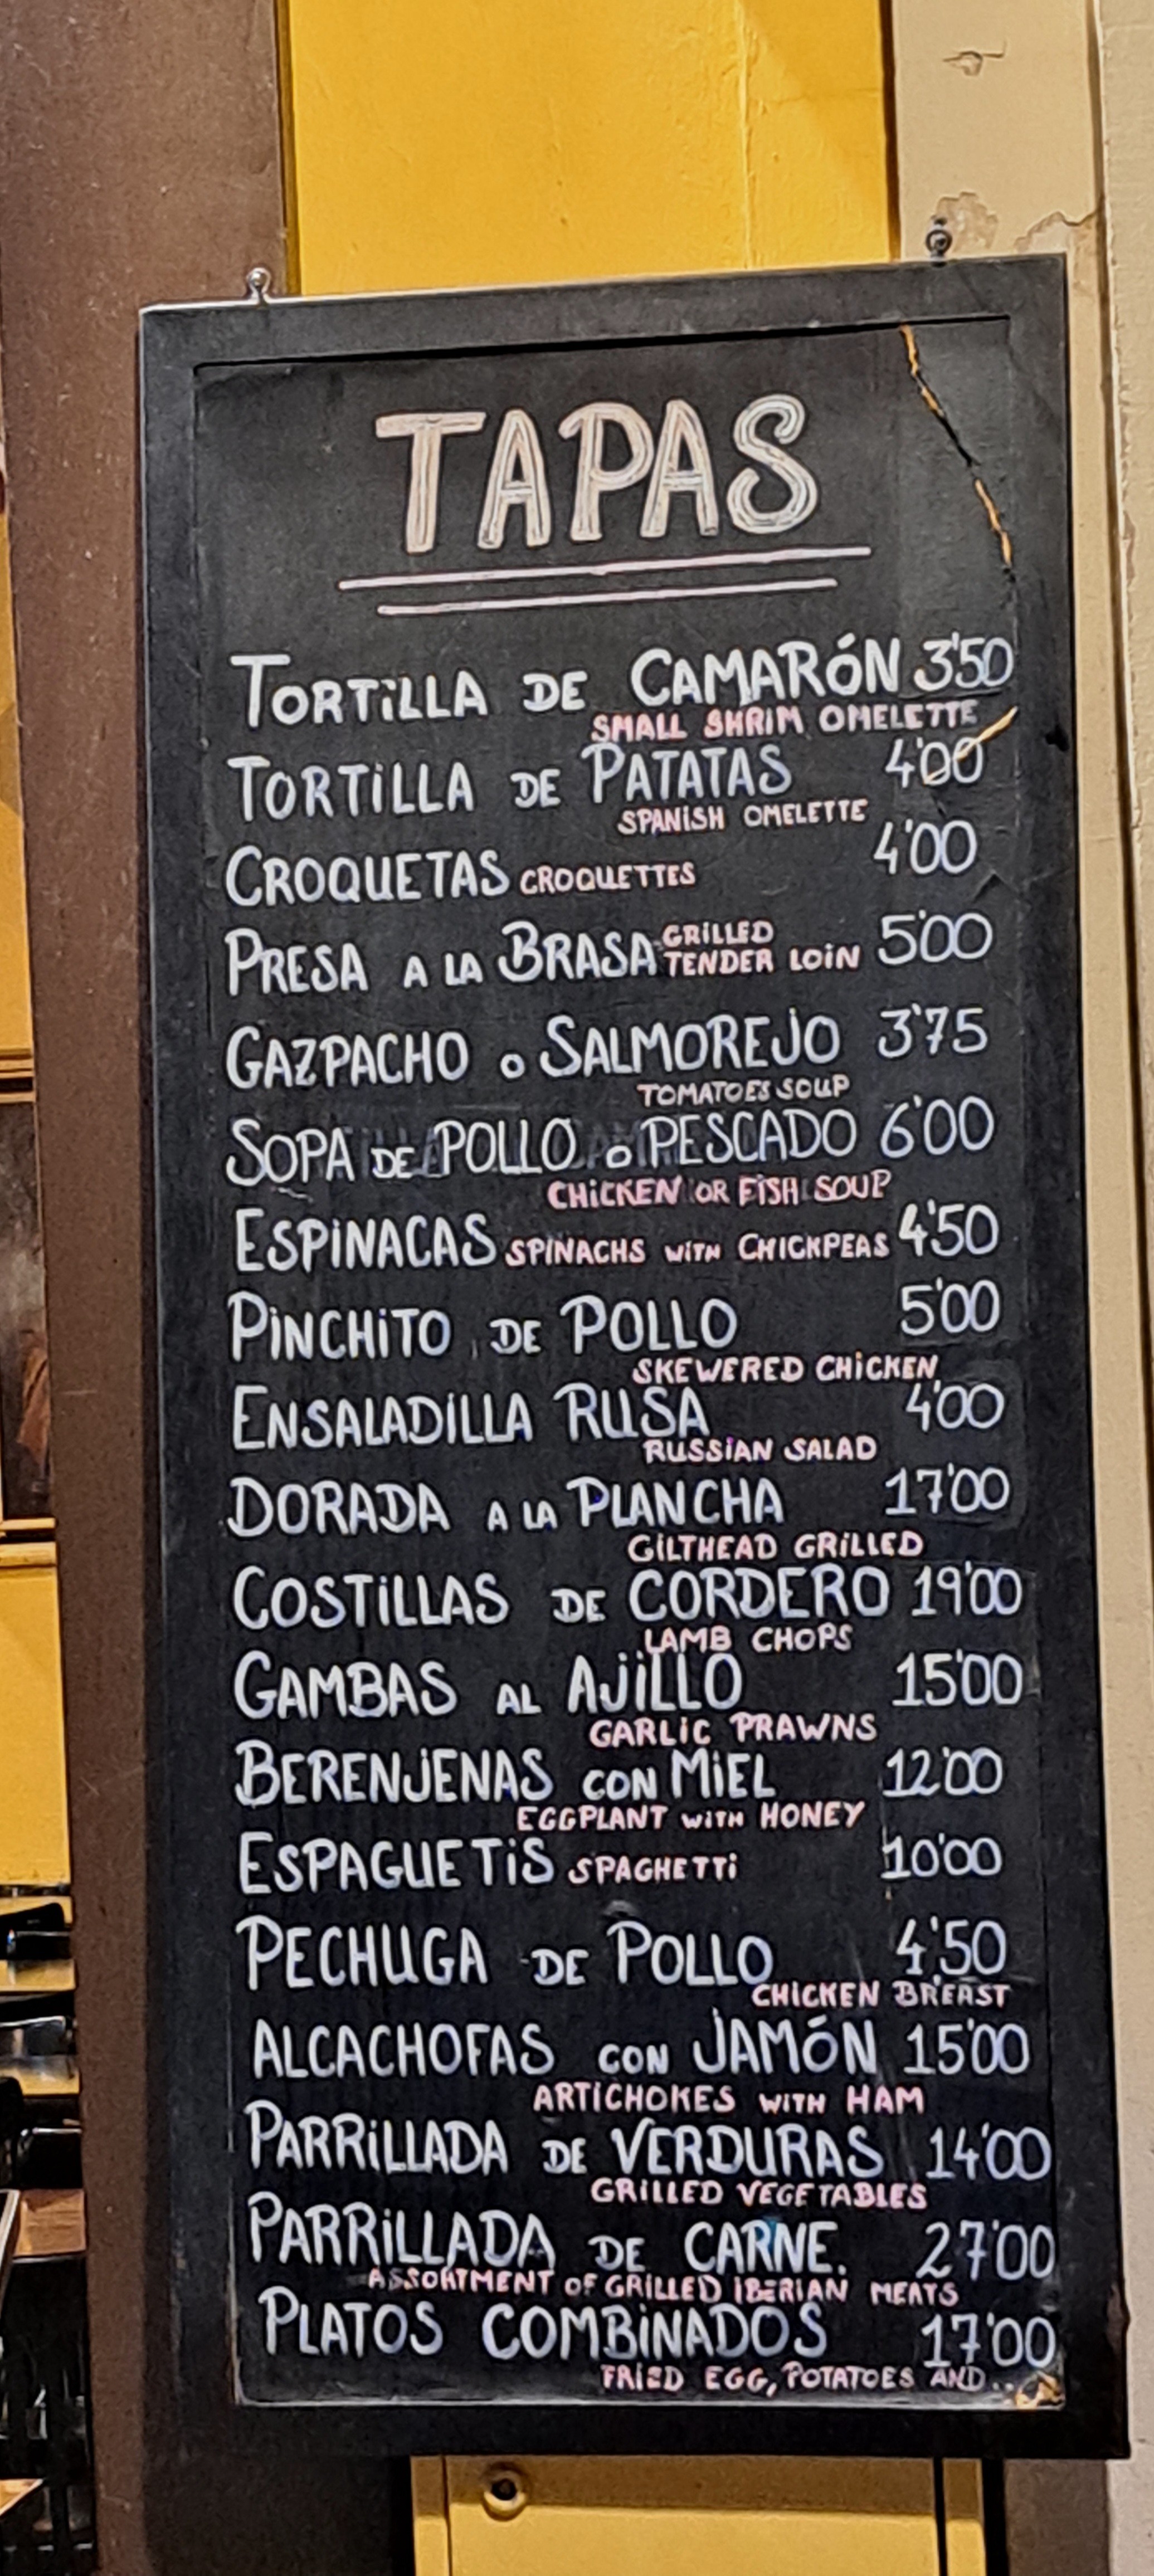 TAPAS
TORTILLA DE CAMARÓN 3'50
SMALL SHRIM OMELETTE
TORTILLA DE PATATAS 4'00
SPANISH OMELETTE
CROQUETAS CROQUETTES 4'00
PRESA A LA BRASA GRILLED TENDER LOIN 5'00
GAZPACHO O SALMOREJO 3'75
TOMATOES SOUP
SOPA DE POLLO O PESCADO 6'00
CHICKEN OR FISH SOUP
ESPINACAS SPINACHS WITH CHICKPEAS 4'50
PINCHITO DE POLLO 5'00
SKEWERED CHICKEN
ENSALADILLA RUSA 4'00
RUSSIAN SALAD
DORADA A LA PLANCHA 17'00
GILTHEAD GRILLED
COSTILLAS DE CORDERO 19'00
LAMB CHOPS
GAMBAS AL AJILLO 15'00
GARLIC PRAWNS
BERENJENAS CON MIEL 12'00
EGGPLANT WITH HONEY
ESPAGUETIS SPAGHETTI 10'00
PECHUGA DE POLLO 4'50
CHICKEN BREAST
ALCACHOFAS CON JAMÓN 15'00
ARTICHOKES WITH HAM
PARRILLADA DE VERDURAS 14'00
GRILLED VEGETABLES
PARRILLADA DE CARNE. 27'00
ASSORTMENT OF GRILLED IBERIAN MEATS
PLATOS COMBINADOS 17'00
FRIED EGG, POTATOES AND...